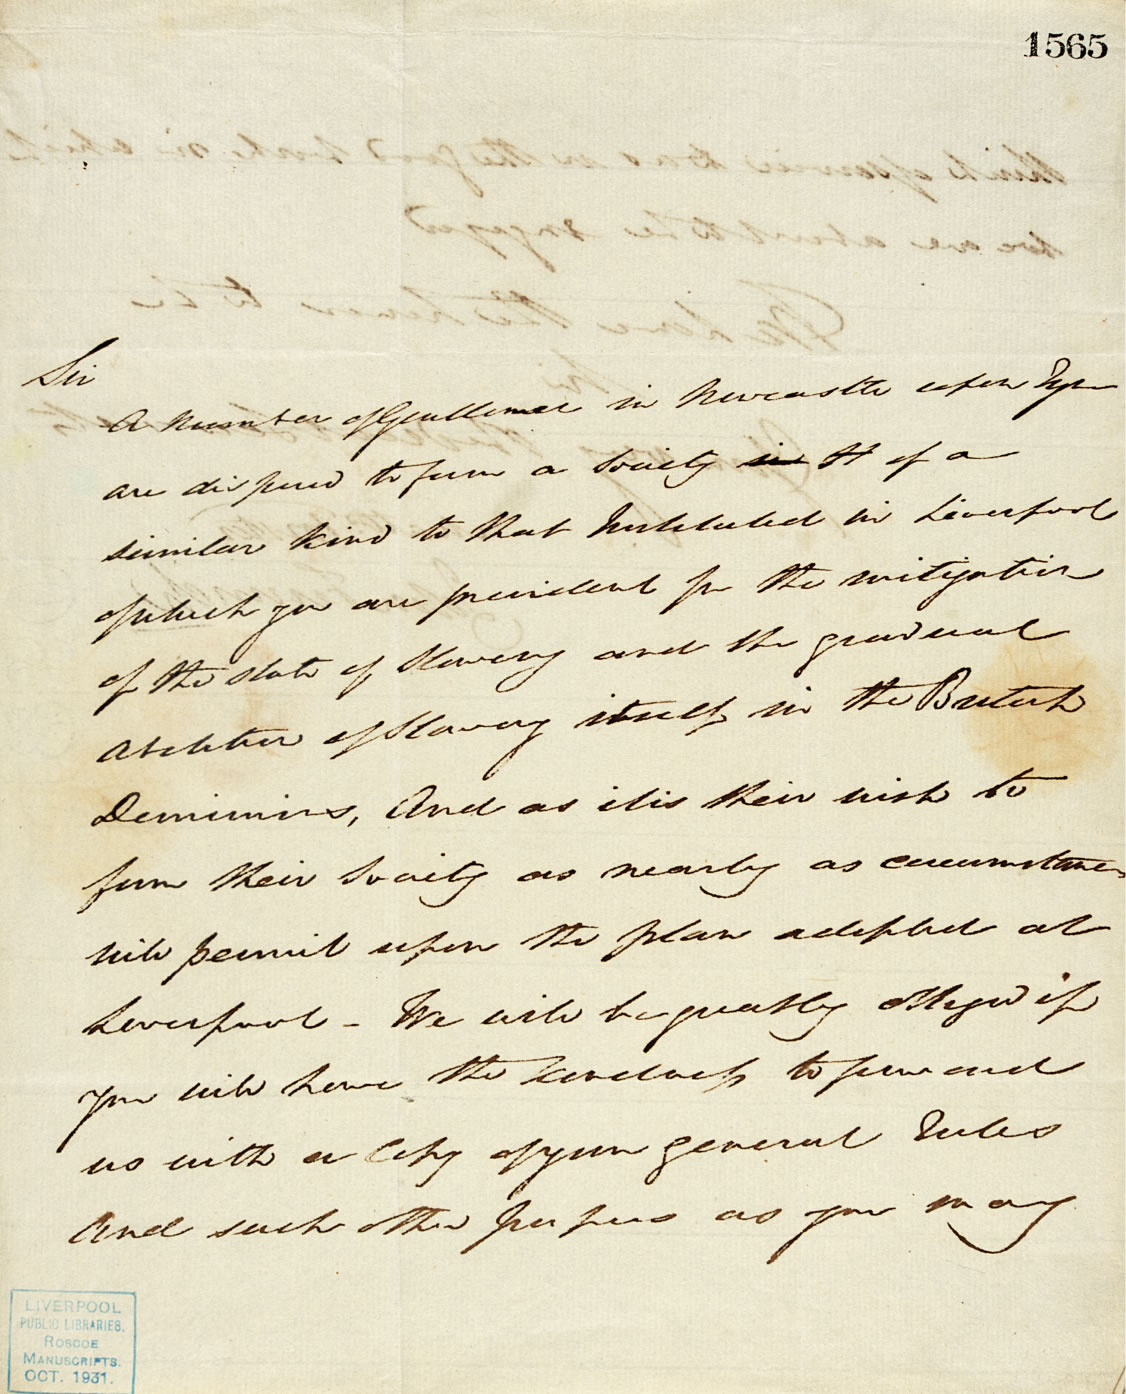 1565
Sir
A Number of Gentlemen in Newcastle upon Tyne
are disposed to form a Society in it of a
similar kind to that Instituted in Liverpool
of which you are president for the mitigation
of the state of Slavery and the gradual
abolition of Slavery itself in the British
Dominions, And as it is their wish to
form their Society as nearly as circumstances
will permit upon the plan adopted at
Liverpool - We will be greatly obliged if
you will have the kindness to forward
us with a Copy of your general Rules
And such other papers as you may
LIVERPOOL
PUBLIC LIBRARIES.
ROSCOE
MANUSCRIPTS.
OCT. 1931.